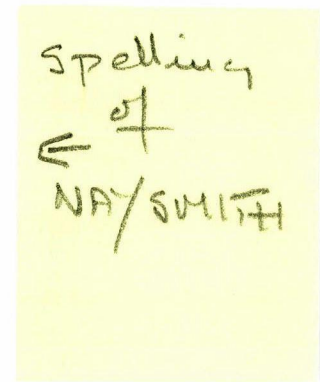 Spelling
of
←
NAYSMITH